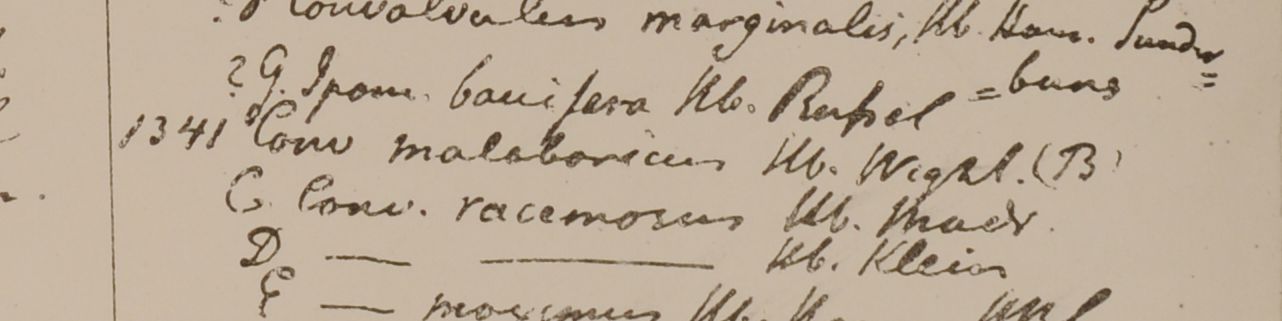 Convolvulus marginalis, Hb. Ham. Sunder=
? G. Ipom. baccifera Hb. Russel =buns
1341 Conv malabaricus Hb. Wight. (B)
C. Conv. racemosus Hb. Madr.
D — — Hb. Klein
E — maximus Hb.